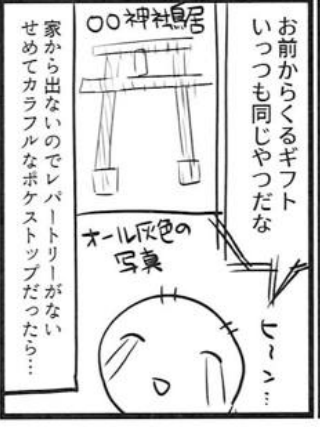 お前からくるギフト
いっつも同じやつだな
○○神社鳥居
オール灰色の
写真
ヒ〜ン…
家から出ないのでレパートリーがない
せめてカラフルなポケストップだったら…